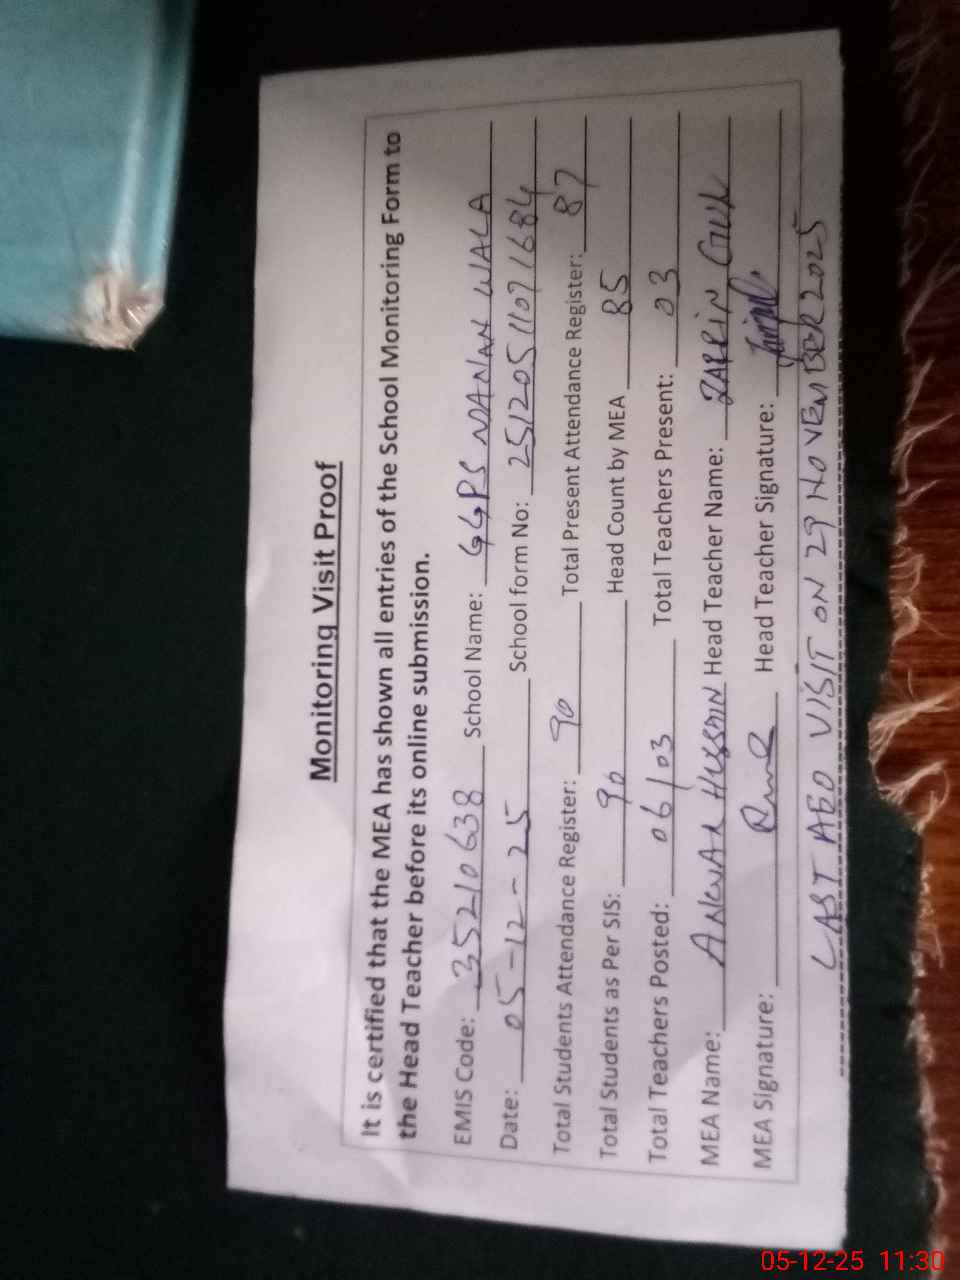 Monitoring Visit Proof
It is certified that the MEA has shown all entries of the School Monitoring Form to
the Head Teacher before its online submission.
EMIS Code: 35210638 School Name: GGPS NANAN WALA
Date: 05-12-25 School form No: 25120511071684
Total Students Attendance Register: 90 Total Present Attendance Register: 87
Total Students as Per SIS: 90 Head Count by MEA 85
Total Teachers Posted: 06/03 Total Teachers Present: 03
MEA Name: ANWAR HUSSAIN Head Teacher Name: ZARRIN GULL
MEA Signature: Head Teacher Signature:
LAST AEO VISIT ON 29 NOVEMBER 2025
05-12-25 11:30